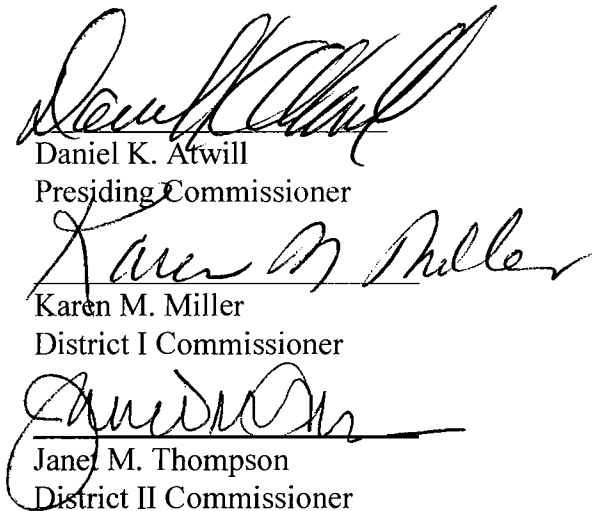 Daniel K. Atwill
Daniel K. Atwill
Presiding Commissioner
Karen M Miller
Karen M. Miller
District I Commissioner
Janet M. Thompson
District II Commissioner